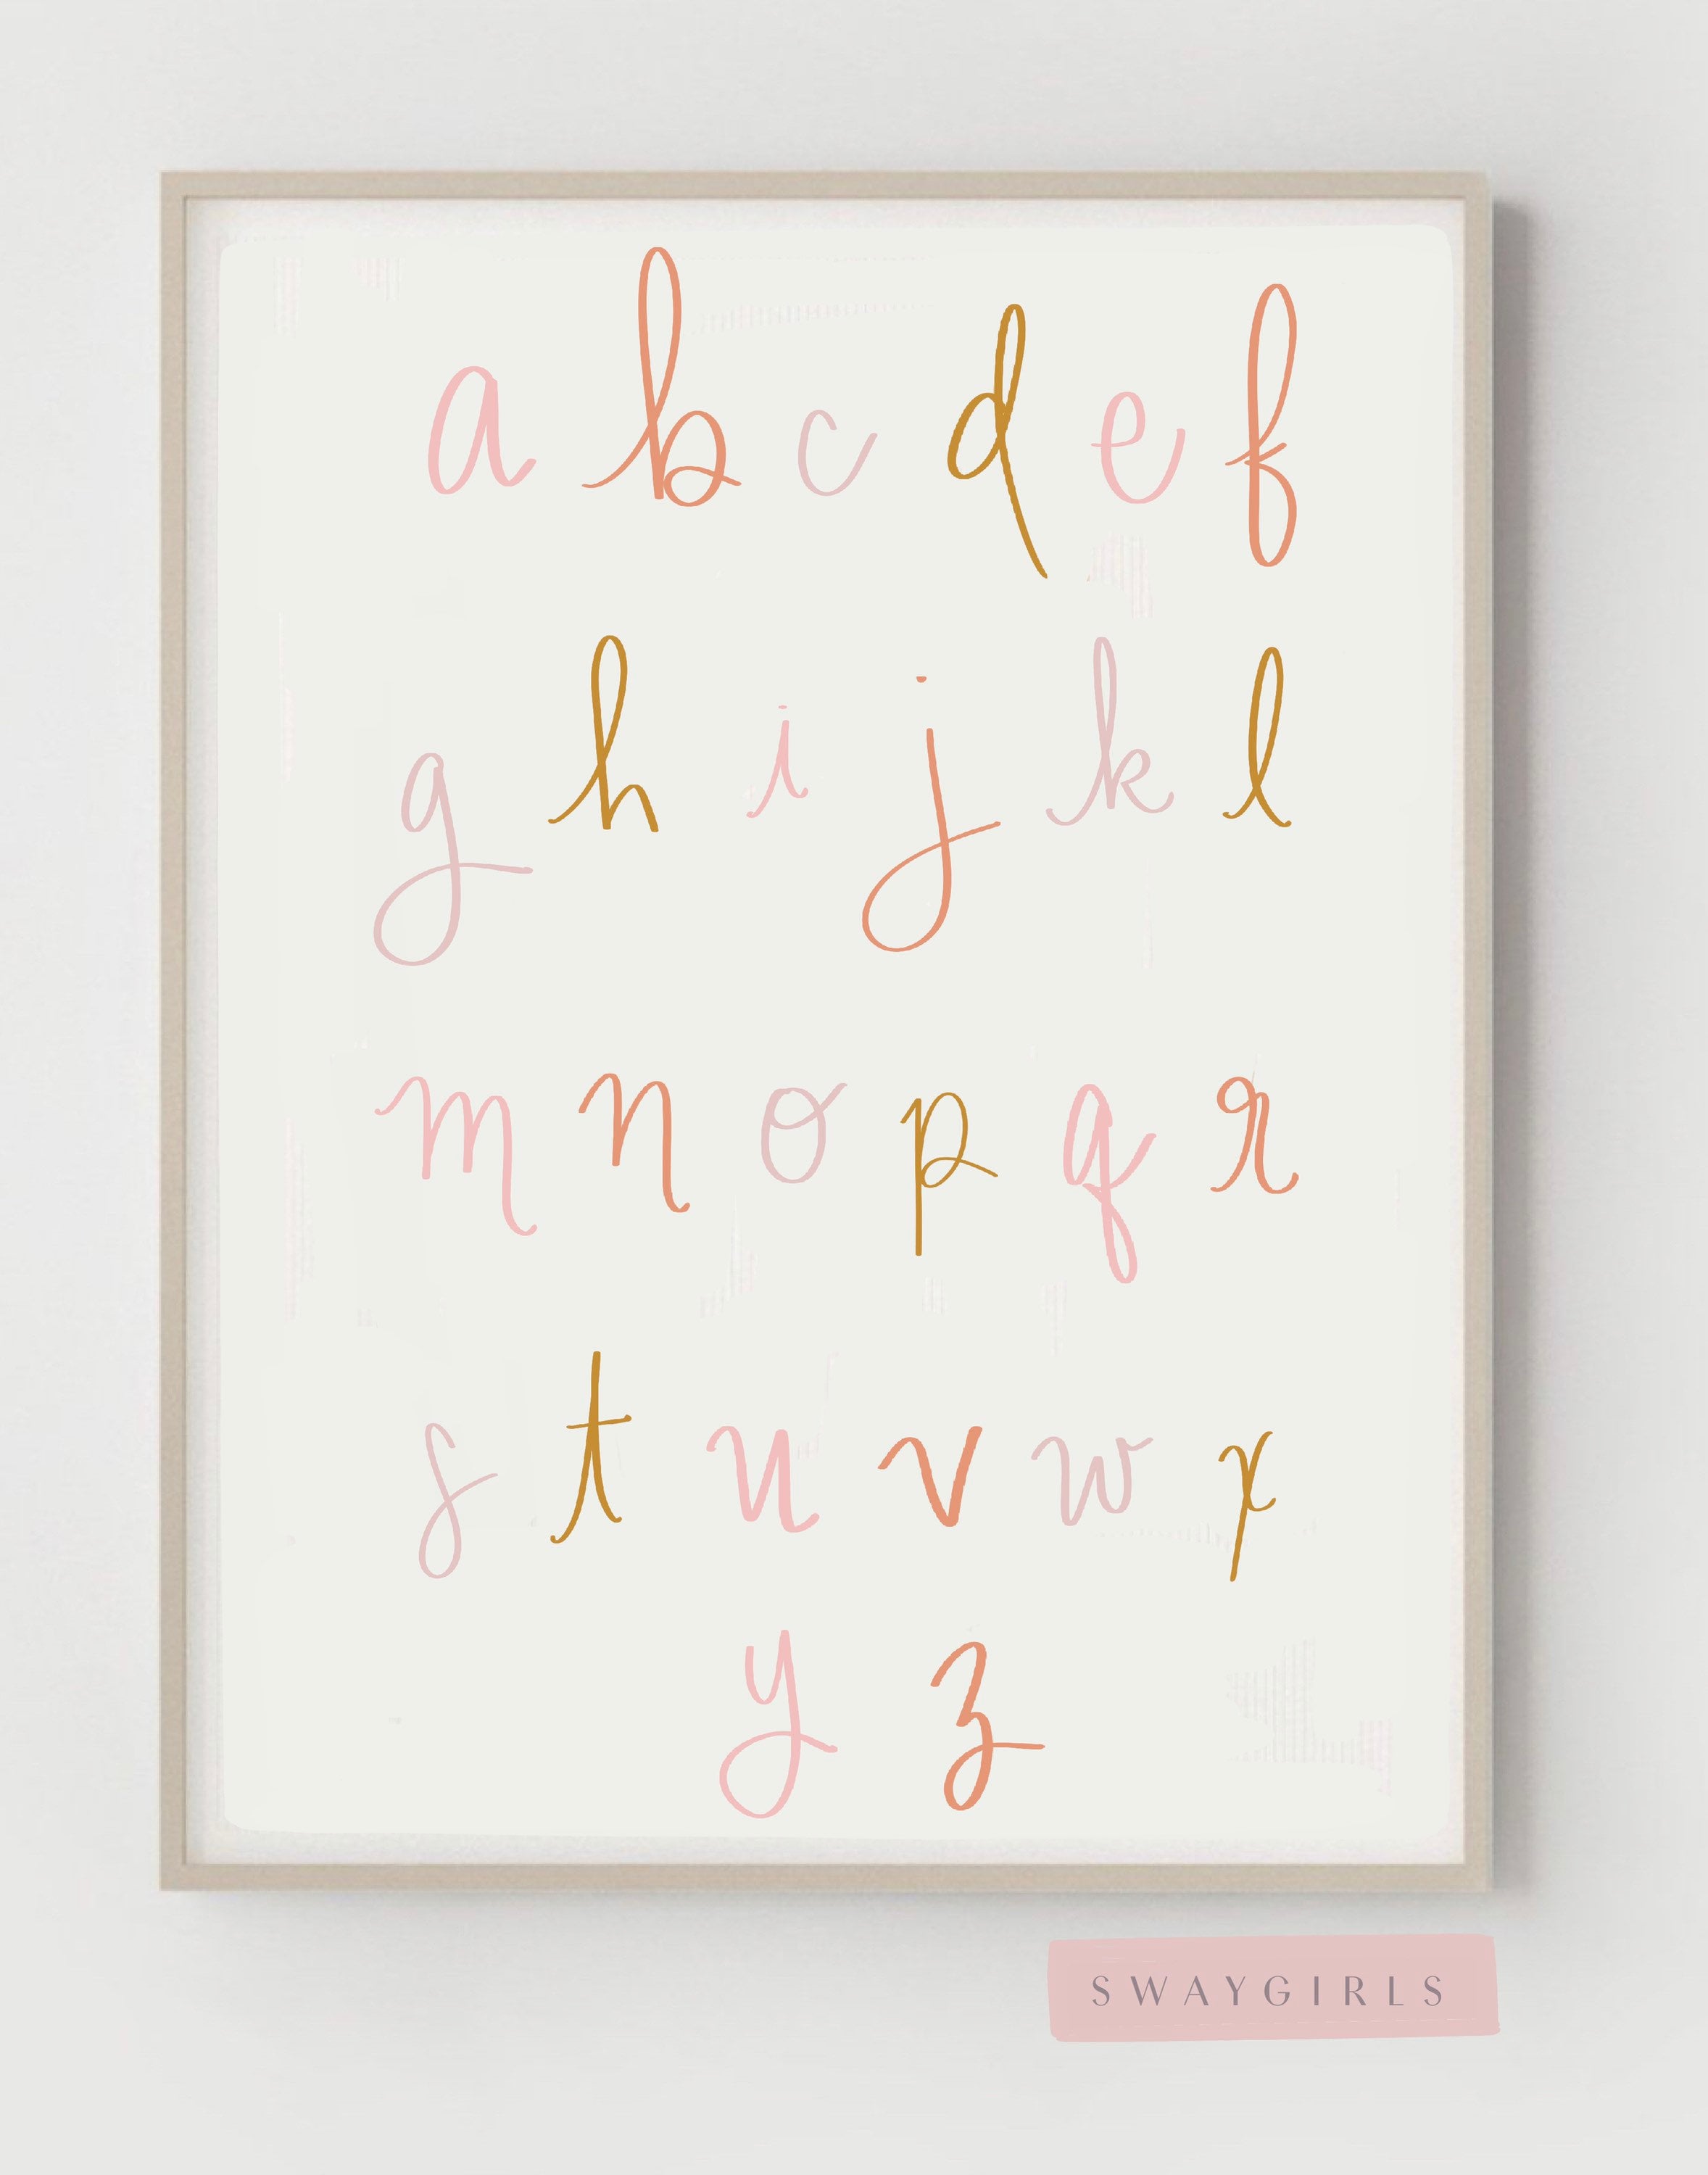 a b c d e f
g h i j k l
m n o p q r
s t u v w x
y z
SWAYGIRLS